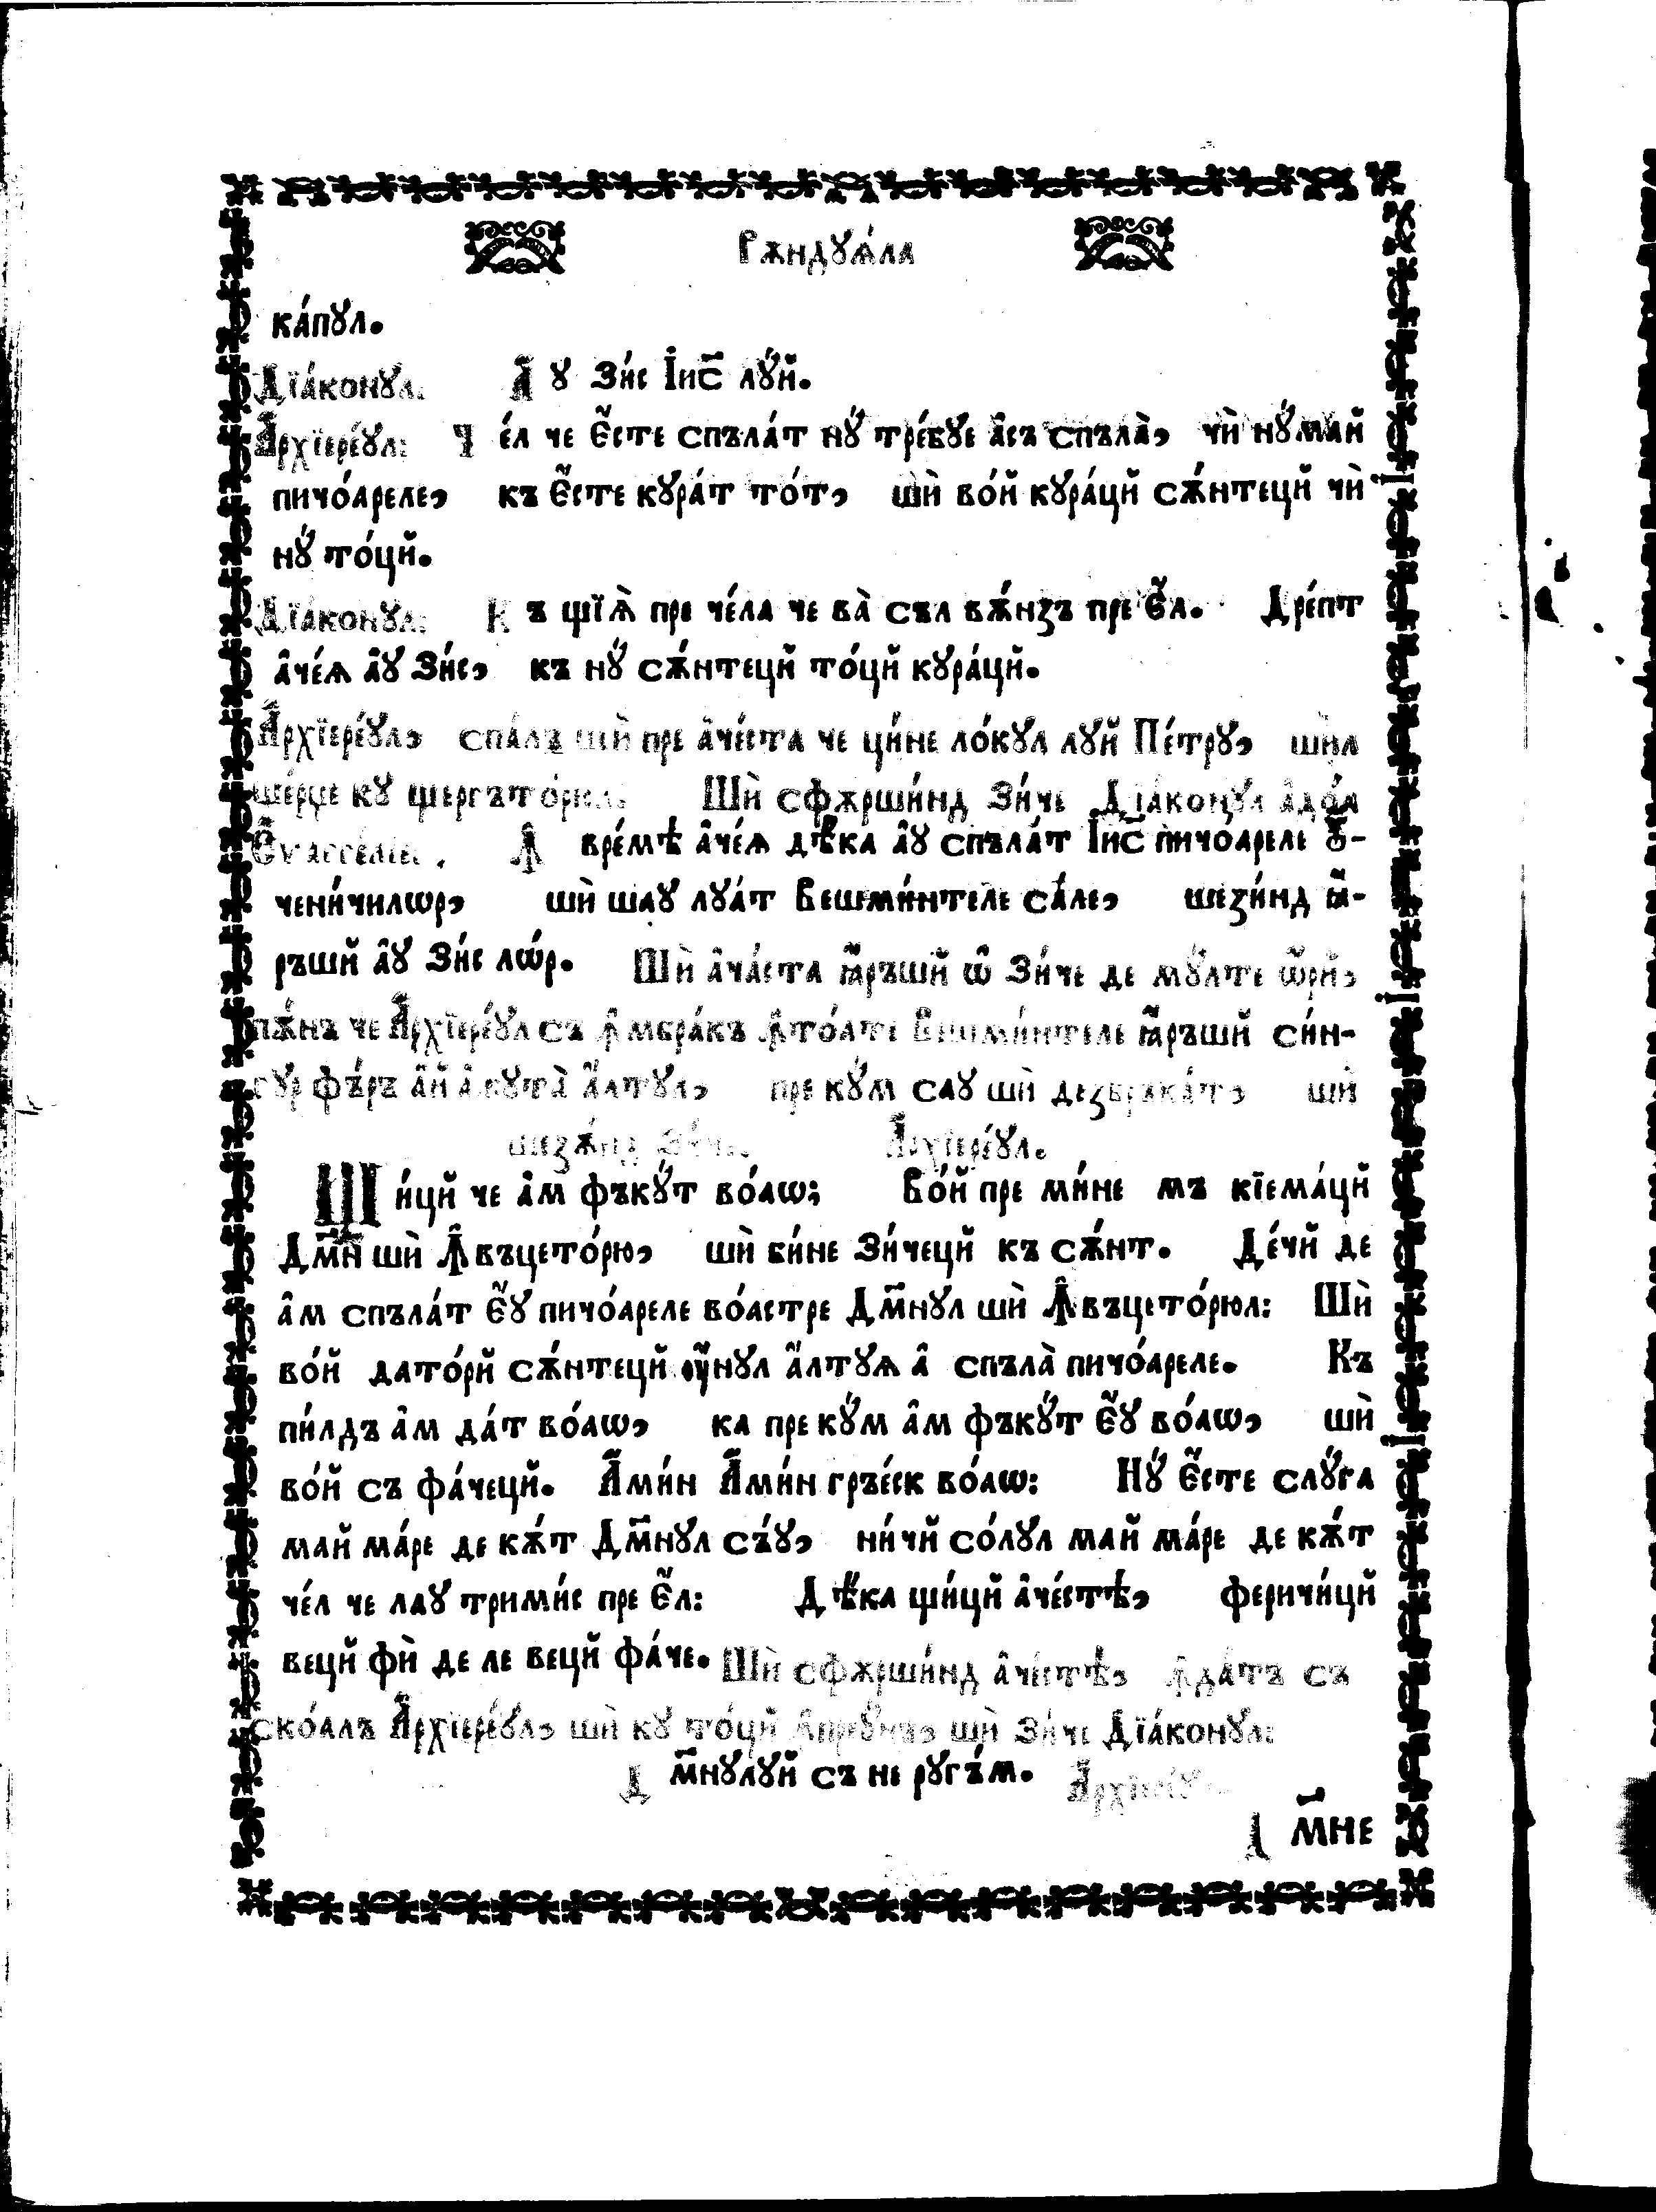 Рѫндꙋѧ́ла
ка́пꙋл.
Дїа́конꙋл. Аꙋ Зи́с І҆и҆с҃ лꙋ́й.
А҆рхїере́ꙋл: Че́л че Є҆́сте спъла́т нꙋ́ тре́бꙋе а҆съ спъла̀, чѝ нꙋ́май
пичо́ареле, къ Є҆́сте кꙋра́т то́т, шѝ во́й кꙋра́цй сѫ́нтецй чѝ
нꙋ́ то́цй.
Дїа́конꙋл: Къ щїѧ̀ пре че́ла че ва̀ съл вѫ́нзъ пре Є҆́л. Дре́пт
а҆че́ѧ а҆ꙋ Зи́с, къ нꙋ́ сѫ́нтецй то́цй кꙋра́цй.
А҆рхїере́ꙋл, спа́лъ шѝ пре а҆че́ста че ци́не ло́кꙋл лꙋй Пе́трꙋ, ши́л
ше́рџе кꙋ щергъто́рюл. Шѝ сфѫрши́нд Зи́че Дїа́конꙋл а҆до́ѧ
Є҆ѵагге́лїе. Ꙟ вре́мѣ а҆че́ѧ дѣ́ка а҆ꙋ спъла́т І҆и҆с҃ пичоареле ꙋ҆-
чени́чилѡр, шѝ шаꙋ лꙋа́т Вешми́нтеле са́ле, шези́нд ꙗ҆-
ръшй а҆ꙋ Зи́с лѡ́р. Шѝ а҆ча́ста ꙗ҆ръшй ѡ҆ Зи́че де мꙋ́лте ѡ҆рй,
пѫ́нъ че А҆рхїере́ꙋл съ ꙟ҆мбра́къ ꙟ҆то́ате Вешми́нтеле ꙗ҆ръшй си́н-
гꙋр фъ́ръ а҆й а҆жꙋта̀ а҆́лтꙋл, пре кꙋ́м саꙋ шѝ дезбрака́т, шѝ
шезѫ́нд Зи́че. А҆рхїере́ꙋл.
Щи́цй че а҆м фъкꙋ́т во́аѡ; Во́й пре ми́не мъ кїема́цй
Дм҃н шѝ Ꙟ҆въцето́рю, шѝ бине Зи́чецй къ сѫ́нт. Де́чй де
а҆м спъла́т Є҆ꙋ пичо́ареле во́астре Дм҃нꙋл шѝ Ꙟ҆въцето́рюл: Шѝ
во́й дато́рй сѫ́нтецй ѹ҆́нꙋл а҆́лтꙋѧ а҆ спъла̀ пичо́ареле. Къ
пи́лдъ а҆м да́т во́аѡ, ка пре кꙋ́м а҆м фъкꙋ́т Є҆ꙋ во́аѡ, шѝ
во́й съ фа́чецй. А҆ми́н А҆ми́н гръе́ск во́аѡ: Нꙋ́ Є҆́сте слꙋ́га
май ма́ре де кѫ́т Дм҃нꙋл съ́ꙋ, ни́чй со́лꙋл май ма́ре де кѫ́т
че́л че лаꙋ трими́с пре Є҆́л: Дѣ́ка щи́цй а҆че́стѣ, феричи́цй
вецй фѝ де ле вецй фа́че. Шѝ сфѫрши́нд а҆че́стѣ, ꙟ҆да́тъ съ
ско́алъ А҆рхїере́ꙋл, шѝ кꙋ то́цй ꙟ҆преꙋ́нъ, шѝ Зи́че Дїа́конꙋл:
Дм҃нꙋлꙋй съ не рꙋгъ́м. А҆рхїере́ꙋл
Дм҃не